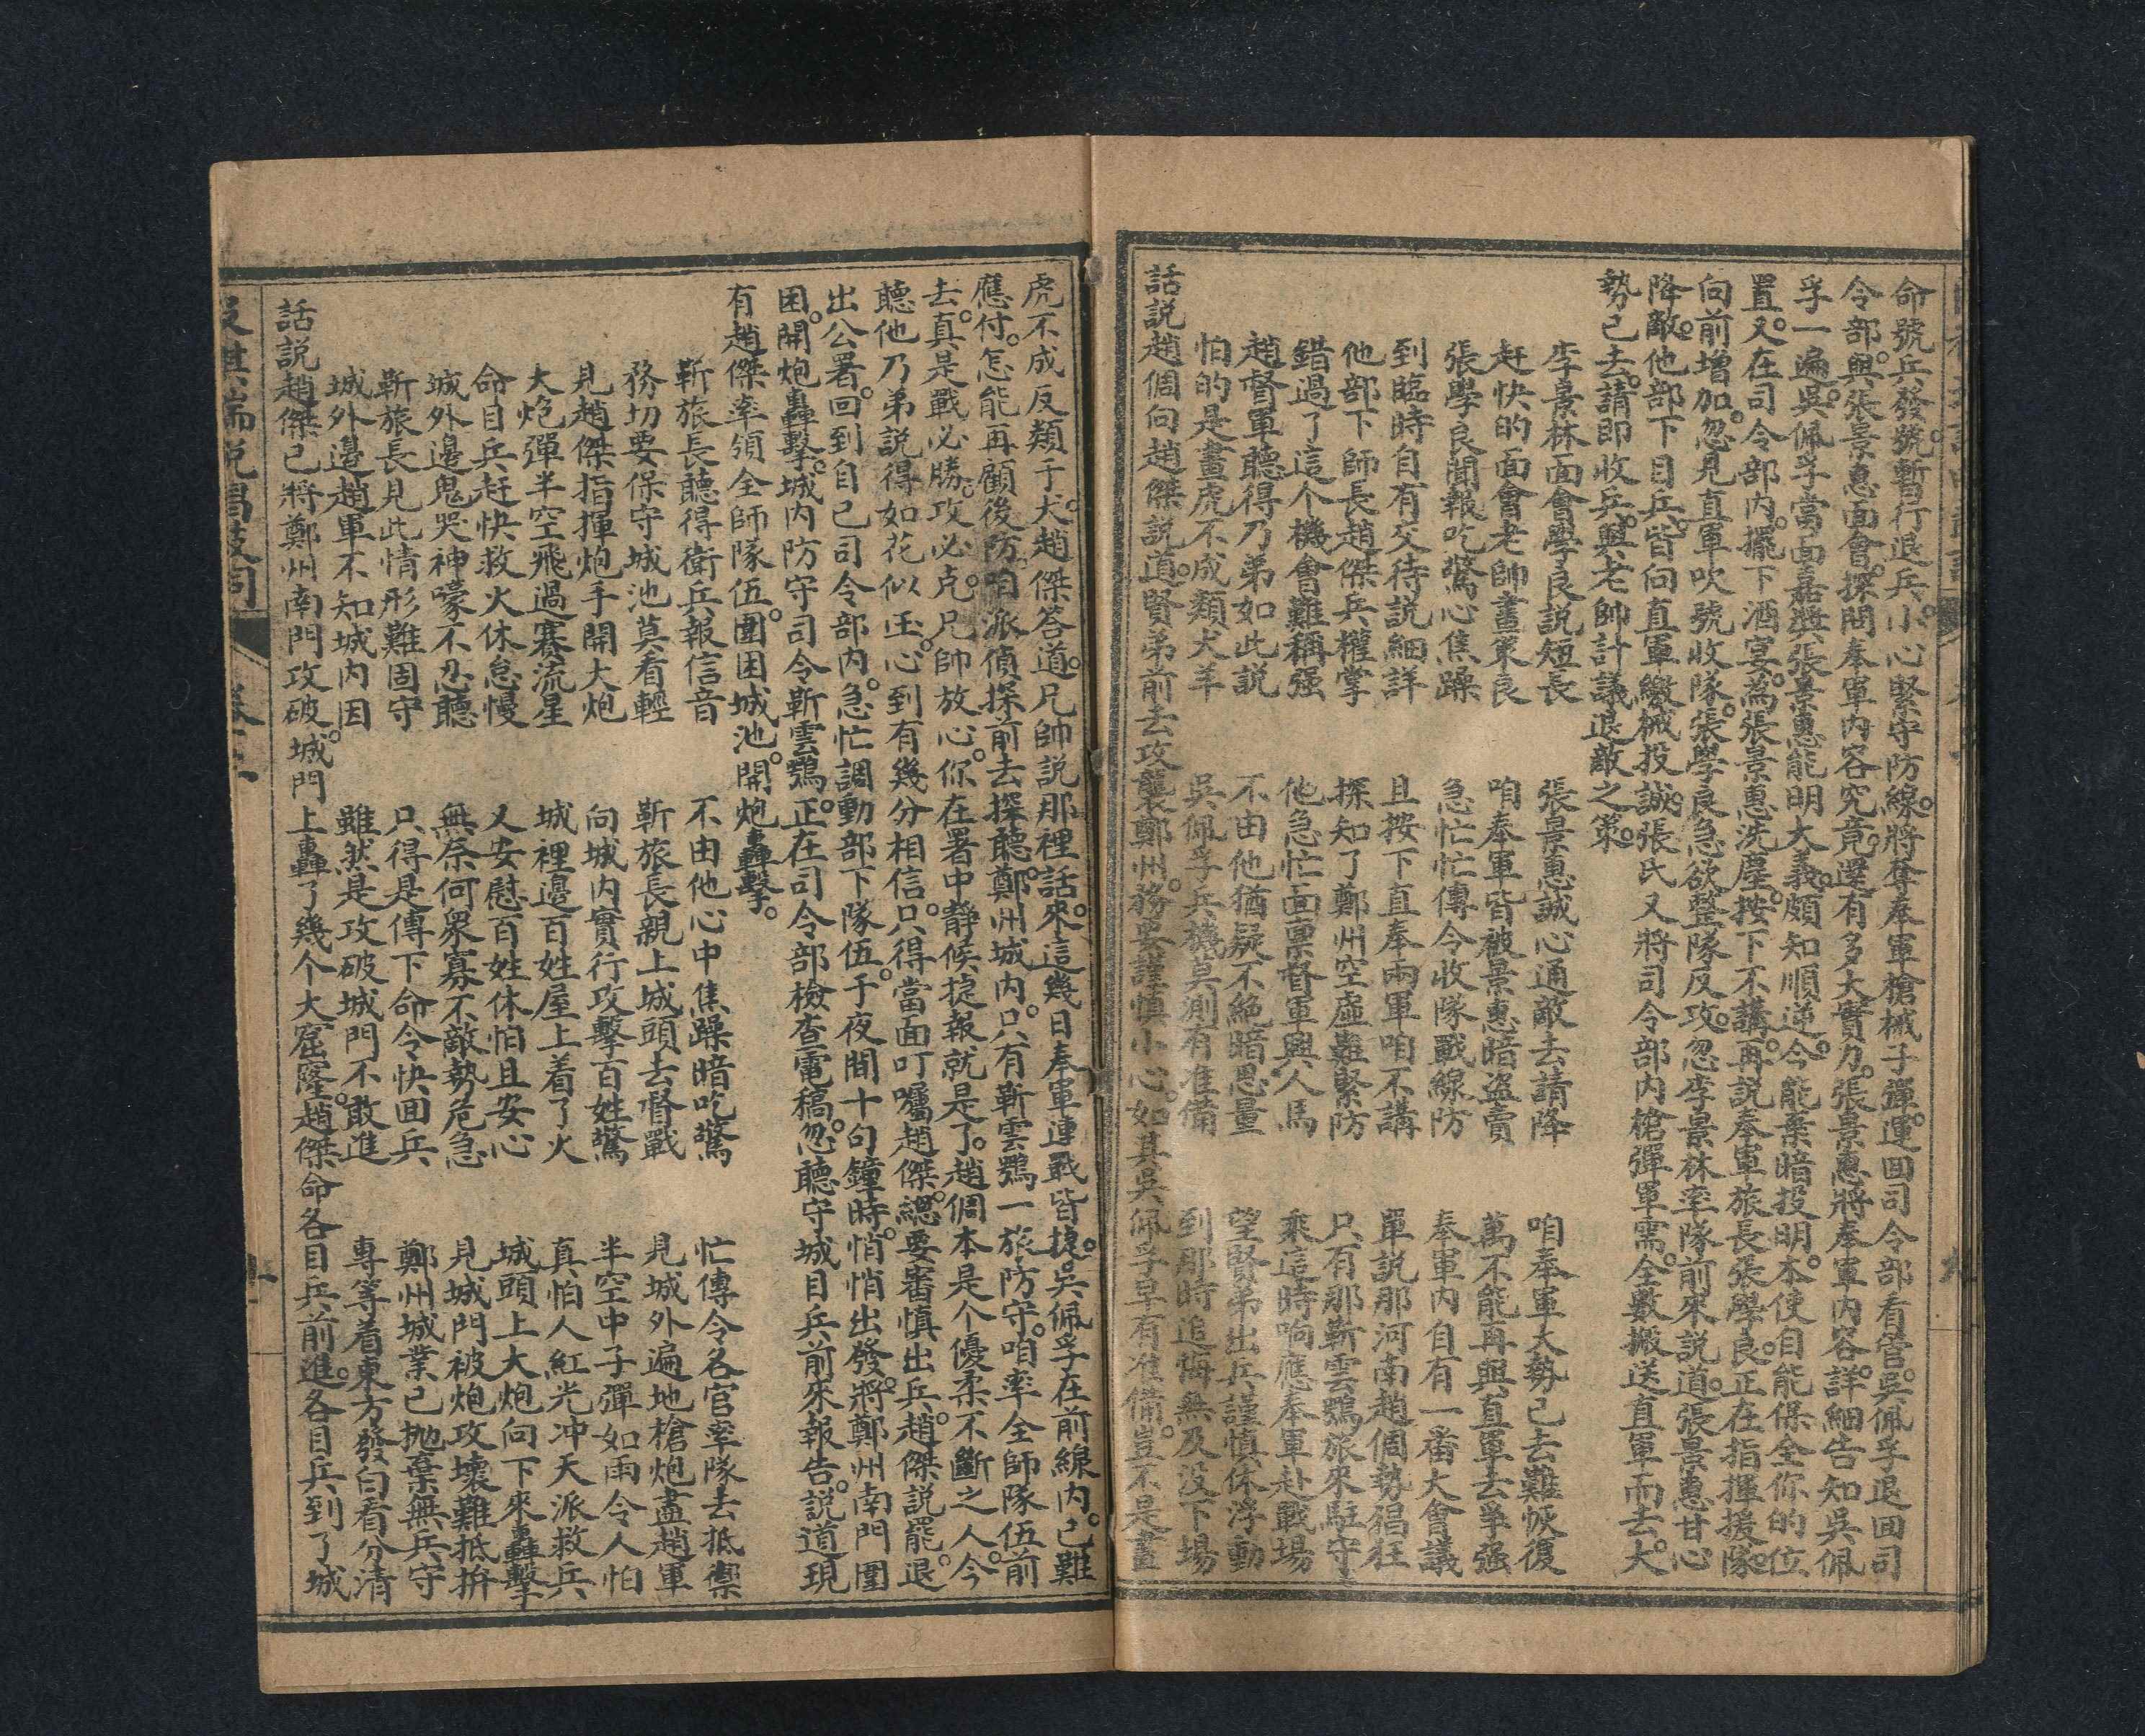 命號兵發號。暫行退兵。小心緊守防線。將奪奉軍槍械子彈。運回司令部看管。吳佩孚退回司
令部。與張景惠面會。探問奉軍內容究竟。還有多大實力。張景惠將奉軍內容。詳細告知吳佩
孚一遍。吳佩孚當面嘉獎。張景惠能明大義。頗知順逆。今能棄暗投明。本使自能保全你的位
置。又在司令部內。擺下酒宴。為張景惠洗塵。按下不講。再説奉軍旅長張學良。正在指揮援隊。
向前增加。忽見直軍吹號收隊。張學良急欲整隊反攻。忽李景林率隊前來。説道。張景惠甘心
降敵。他部下目兵。皆向直軍繳械投誠。張氏又將司令部內槍彈軍需。全數搬送直軍而去。大
勢已去。請即收兵。與老帥計議退敵之策。
李景林面會學良説短長　張景惠誠心通敵去請降　咱奉軍大勢已去難恢復
赶快的面會老帥畫策良　咱奉軍皆被景惠暗盜賣　萬不能再與直軍去爭强
張學良聞報吃驚心焦躁　急忙忙傳令收隊戰線防　奉軍內自有一番大會議
到臨時自有交待説細詳　且按下直奉兩軍咱不講　單説那河南趙倜勢猖狂
他部下師長趙傑兵權掌　探知了鄭州空虛雖緊防　只有那靳雲鶚旅來駐守
錯過了這个機會難稱强　他急忙面禀督軍興人馬　乘這時响應奉軍赴戰場
趙督軍聽得乃弟如此説　不由他猶疑不絶暗思量　望賢弟出兵謹慎休浮動
怕的是畫虎不成類犬羊　吳佩孚兵機莫測有准備　到那時追悔無及没下場
話説趙倜向趙傑説道。賢弟前去攻襲鄭州。務要謹慎小心。如其吳佩孚早有准備。豈不是畫
虎不成反類于犬。趙傑答道。兄帥説那裡話來。這幾日奉軍連戰皆捷。吳佩孚在前線內。已難
應付。怎能再顧後防。咱派偵探前去探聽。鄭州城內。只有靳雲鶚一旅防守。咱率全師隊伍前
去。真是戰必勝。攻必克。兄帥放心。你在署中靜候捷報就是了。趙倜本是个優柔不斷之人。今
聽他乃弟説得如花似玉。心到有幾分相信。只得當面叮囑趙傑。總要審慎出兵。趙傑説罷。退
出公署。回到自己司令部內。急忙調動部下隊伍。于夜間十句鐘時。悄悄出發。將鄭州南門圍
困。開炮轟擊。城內防守司令靳雲鶚。正在司令部檢查電稿。忽聽守城目兵前來報告。説道現
有趙傑率領全師隊伍。圍困城池。開炮轟擊。
靳旅長聽得衛兵報信音　不由他心中焦躁暗吃驚　忙傳令各官率隊去抵禦
務切要保守城池莫看輕　靳旅長親上城頭去督戰　見城外遍地槍炮盡趙軍
見趙傑指揮炮手開大炮　向城內實行攻擊百姓驚　半空中子彈如雨令人怕
大炮彈半空飛過賽流星　城裡邊百姓屋上着了火　真怕人紅光冲天派救兵
命目兵赶快救火休怠慢　又安慰百姓休怕且安心　城頭上大炮向下來轟擊
城外邊鬼哭神嚎不忍聽　無奈何衆寡不敵勢危急　見城門被炮攻壞難抵拚
靳旅長見此情形難固守　只得是傳下命令快回兵　鄭州城業已抛棄無兵守
城外邊趙軍不知城內因　雖然是攻破城門不敢進　專等着東方發白看分清
話説趙傑已將鄭州南門攻破。城門上轟了幾个大窟窿。趙傑命各目兵前進。各目兵到了城